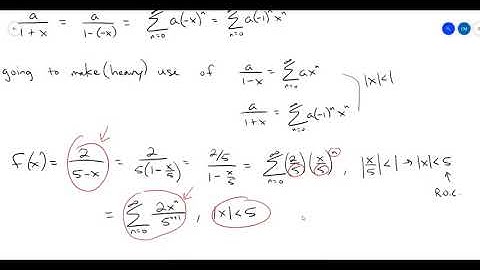 a/(1+x) = a/(1-(-x)) = ∑_{n=0}^{∞} a(-x)^n = ∑_{n=0}^{∞} a(-1)^n x^n
going to make (heavy) use of a/(1-x) = ∑_{n=0}^{∞} ax^n
|x|<1
a/(1+x) = ∑_{n=0}^{∞} a(-1)^n x^n
f(x) = 2/(5-x) = 2/(5(1-x/5)) = (2/5)/(1-x/5) = ∑_{n=0}^{∞} (2/5)(x/5)^n, |x/5|<1 → |x|<5
R.O.C.
= ∑_{n=0}^{∞} 2x^n/5^{n+1}, |x|<5